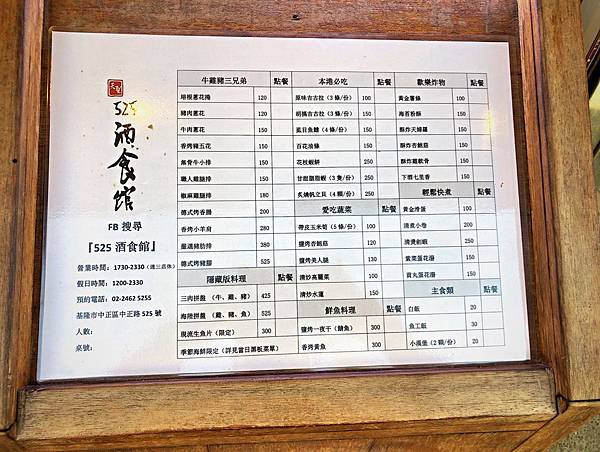 525
酒食館
FB 搜尋
『525 酒食館』
營業時間：1730-2330（週三店休）
假日時間：1200-2330
預約電話：02-2462 5255
基隆市中正區中正路 525 號
人數：
桌號：
牛雞豬三兄弟 點餐
培根蔥花捲 120
豬肉蔥花 120
牛肉蔥花 150
香烤豬五花 150
無骨牛小排 150
職人雞腿排 150
椒麻雞腿排 180
德式烤香腸 200
香烤小羊肩 280
嚴選豬肋排 380
德式烤豬腳 525
隱藏版料理 點餐
三肉拼盤 （牛、雞、豬） 425
海陸拼盤 （雞、魚） 525
現流生魚片（限定） 300
季節海鮮限定（詳見當日黑板菜單）
本港必吃 點餐
原味吉古拉（3 條/份） 100
胡橋吉古拉（3 條/份） 100
虱目魚鰭（4 條/份） 150
百花油條 150
花枝蝦餅 250
甘甜胭脂蝦（3 隻/份） 250
炙燒帆立貝（4 顆/份） 250
愛吃蔬菜 點餐
帶皮玉米筍（5 條/份） 100
鹽烤杏鮑菇 120
鹽烤美人腿 130
清炒高麗菜 100
清炒水蓮 150
鮮魚料理 點餐
鹽烤一夜干（鯖魚） 300
香烤黃魚 300
歡樂炸物 點餐
黃金薯條 100
海苔粉酥 100
酥炸天婦羅 150
酥炸杏鮑菇 150
酥炸雞軟骨 150
下酒七里香 150
輕鬆快煮 點餐
黃金滑蛋 100
清煮小卷 200
清燙劍蝦 250
紫菜蛋花湯 150
貢丸蛋花湯 150
主食類 點餐
白飯 20
魚工飯 30
小漢堡（2 顆/份） 20